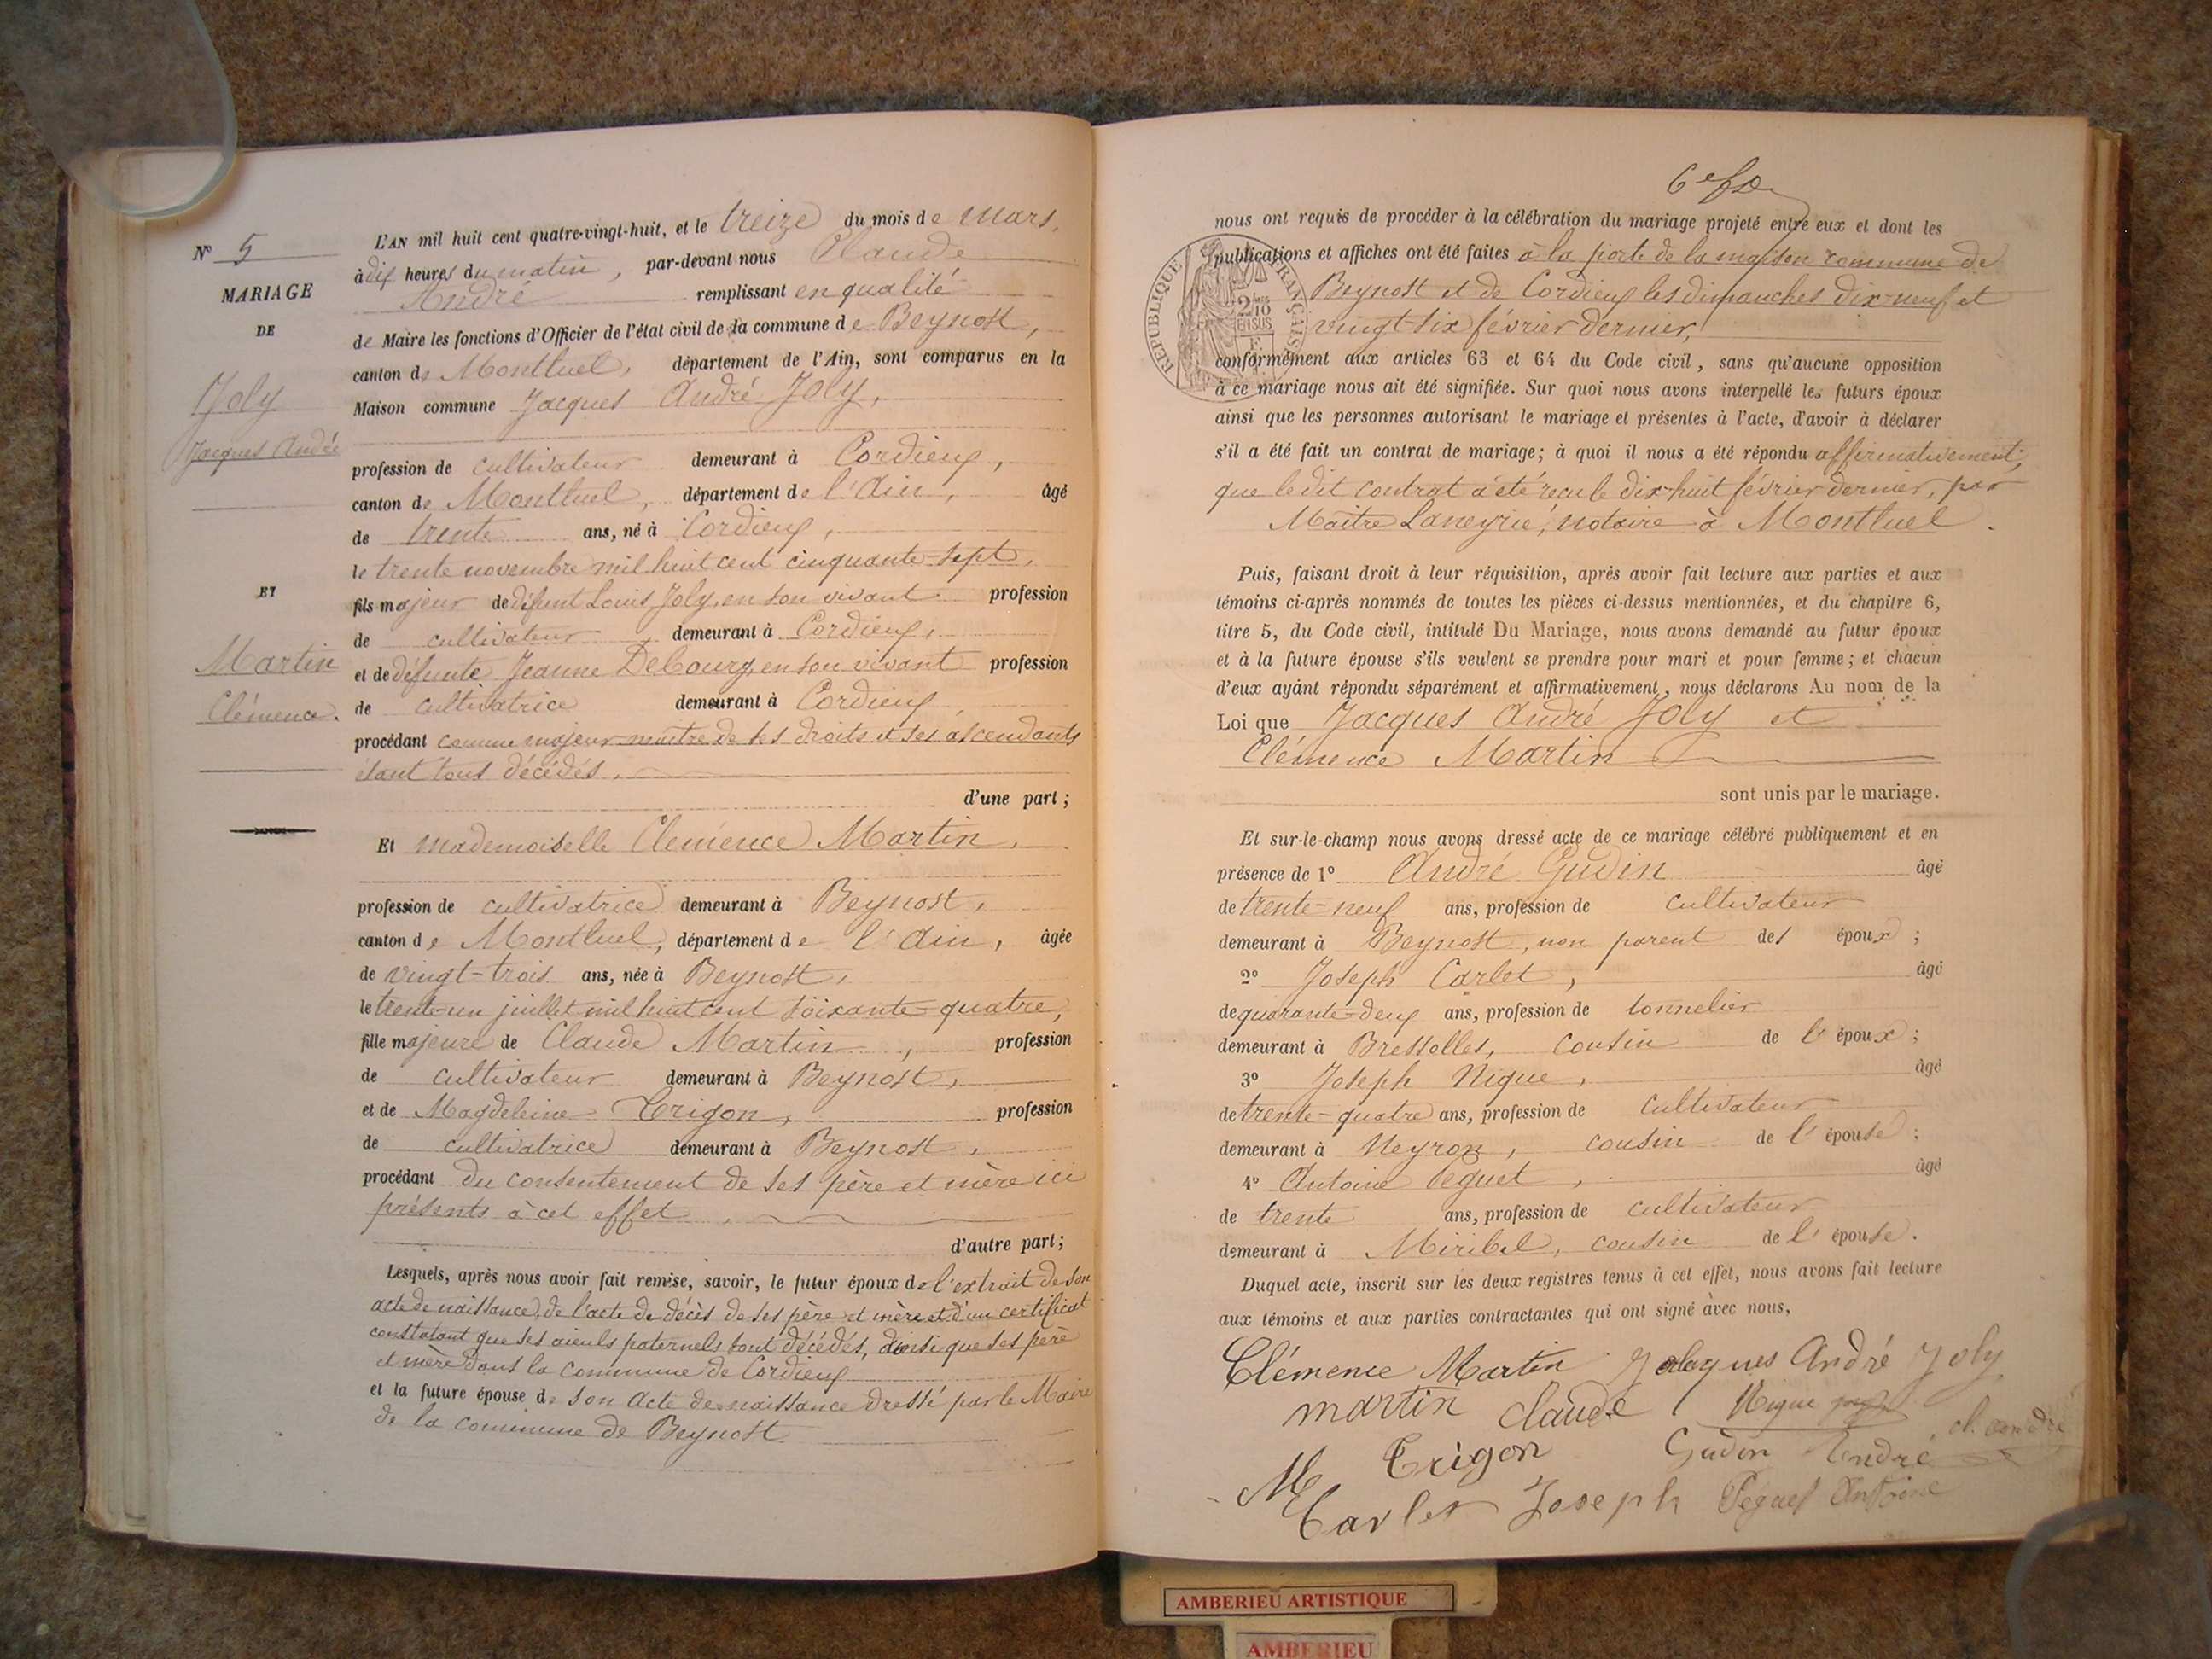 N° 5
MARIAGE
DE
Joly
Jacques André
ET
Martin
Clémence.
L'AN mil huit cent quatre-vingt-huit, et le treize du mois de Mars,
à dix heures du matin, par-devant nous Claude
André remplissant en qualité
de Maire les fonctions d'Officier de l'état civil de la commune de Beynost,
canton de Montluel, département de l'Ain, sont comparus en la
Maison commune Jacques André Joly,
profession de cultivateur demeurant à Cordieux,
canton de Montluel, département de l'Ain, âgé
de trente ans, né à Cordieux,
le trente novembre mil huit cent cinquante-sept,
fils majeur de défunt Louis Joly, en son vivant profession
de cultivateur demeurant à Cordieux,
et de défunte Jeanne Debourg, en son vivant profession
de cultivatrice demeurant à Cordieux,
procédant comme majeur maître de ses droits et ses ascendants
étant tous décédés.
d'une part ;
Et mademoiselle Clémence Martin,
profession de cultivatrice demeurant à Beynost,
canton de Montluel, département de l'Ain, âgée
de vingt-trois ans, née à Beynost,
le trente-un juillet mil huit cent soixante-quatre,
fille majeure de Claude Martin, profession
de cultivateur demeurant à Beynost,
et de Magdeleine Trigon, profession
de cultivatrice demeurant à Beynost,
procédant du consentement de ses père et mère ici
présents à cet effet.
d'autre part ;
Lesquels, après nous avoir fait remise, savoir, le futur époux de l'extrait de son
acte de naissance, de l'acte de décès de ses père et mère et d'un certificat
constatant que ses aïeuls paternels sont décédés, ainsi que ses père
et mère dans la commune de Cordieux
et la future épouse de son acte de naissance dressé par le Maire
de la commune de Beynost
6e
nous ont requis de procéder à la célébration du mariage projeté entre eux et dont les
publications et affiches ont été faites à la porte de la maison commune de
Beynost et de Cordieux les dimanches dix-neuf et
vingt-six février dernier,
RÉPUBLIQUE FRANÇAISE
2/10
EN SUS
conformément aux articles 63 et 64 du Code civil, sans qu'aucune opposition
à ce mariage nous ait été signifiée. Sur quoi nous avons interpellé les futurs époux
ainsi que les personnes autorisant le mariage et présentes à l'acte, d'avoir à déclarer
s'il a été fait un contrat de mariage ; à quoi il nous a été répondu affirmativement,
que le dit contrat a été reçu le dix-huit février dernier, par
Maître Laneyrie, notaire à Montluel.
Puis, faisant droit à leur réquisition, après avoir fait lecture aux parties et aux
témoins ci-après nommés de toutes les pièces ci-dessus mentionnées, et du chapitre 6,
titre 5, du Code civil, intitulé Du Mariage, nous avons demandé au futur époux
et à la future épouse s'ils veulent se prendre pour mari et pour femme ; et chacun
d'eux ayant répondu séparément et affirmativement, nous déclarons Au nom de la
Loi que Jacques André Joly et
Clémence Martin
sont unis par le mariage.
Et sur-le-champ nous avons dressé acte de ce mariage célébré publiquement et en
présence de 1° André Gudin âgé
de trente-neuf ans, profession de cultivateur
demeurant à Beynost, non parent des époux ;
2° Joseph Carlet, âgé
de quarante-deux ans, profession de tonnelier
demeurant à Bressolles, cousin de l'époux ;
3° Joseph Nique, âgé
de trente-quatre ans, profession de cultivateur
demeurant à Neyron, cousin de l'épouse ;
4° Antoine Peguet, âgé
de trente ans, profession de cultivateur
demeurant à Miribel, cousin de l'épouse.
Duquel acte, inscrit sur les deux registres tenus à cet effet, nous avons fait lecture
aux témoins et aux parties contractantes qui ont signé avec nous,
Clémence Martin Jalcques André Joly
martin claude Nique
M Trigon Gudin André cl. andré
Carlet Joseph Peguet Antoine
AMBERIEU ARTISTIQUE
AMBERIEU